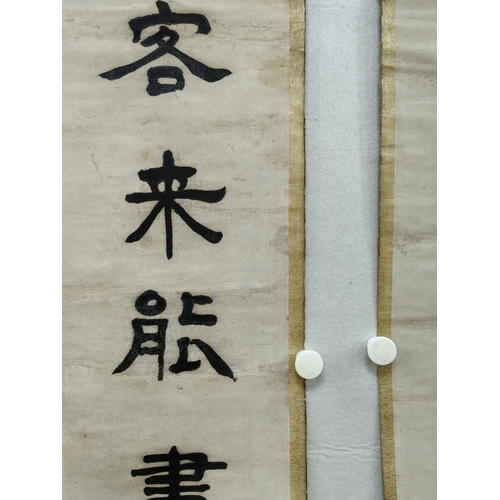 客来能書